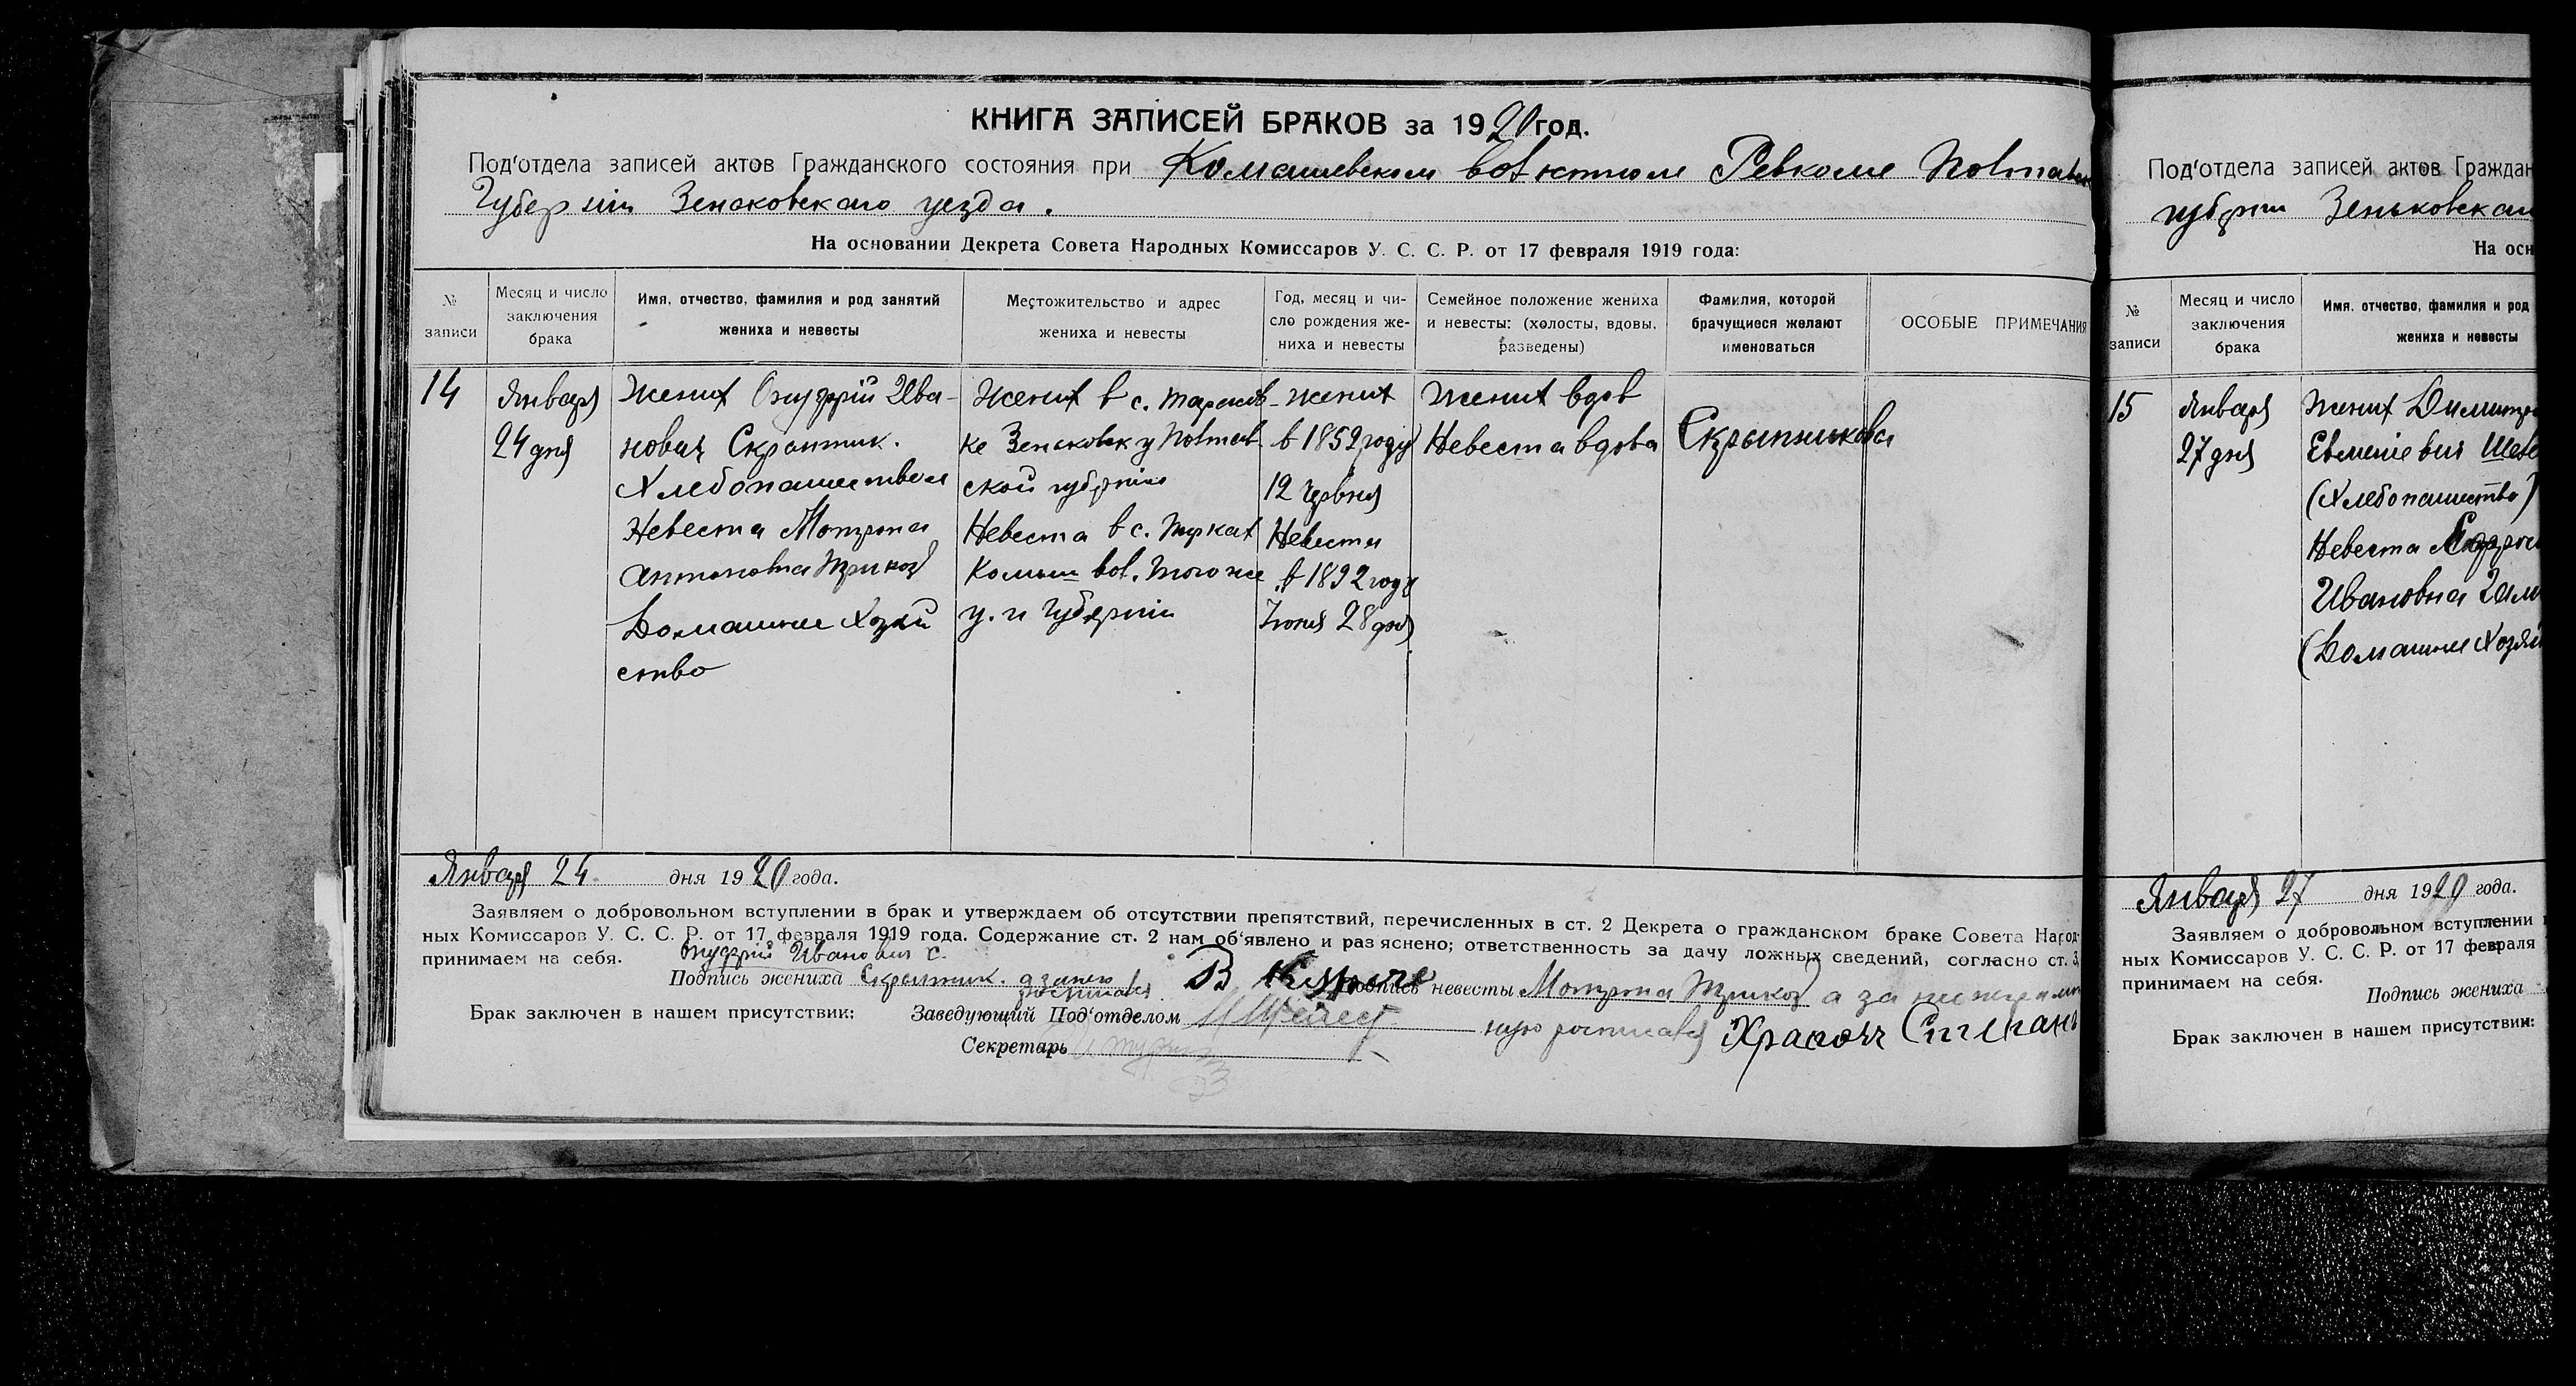 КНИГА ЗАПИСЕЙ БРАКОВ за 1920 год.
Под'отдела записей актов Гражданского состояния при Комашевском вол Ревкоме Полтавск
Губернии Зеньковского уезда.
На основании Декрета Совета Народных Комиссаров У. С. С. Р. от 17 февраля 1919 года:
№ записи
Месяц и число заключения брака
Имя, отчество, фамилия и род занятий жениха и невесты
Местожительство и адрес жениха и невесты
Год, месяц и число рождения жениха и невесты
Семейное положение жениха и невесты: (холосты, вдовы, разведены)
Фамилия, которой брачущиеся желают именоваться
ОСОБЫЕ ПРИМЕЧАНИЯ
14
Января
24 дня
Жених Онуфрій Ива-
нович Скрыпник.
Хлебопашеством
Невеста Мотрона
Антоновна Трикоз
Домашнее Хозяй
ство
Жених в с. Тарасов-
ке Зеньковск у Полтав
ской губерніи
Невеста в с.
Комыш вол. того же
у. и Губерніи
жених
в 1852 году
12
Невеста
в 1892 году
Июня 28 дня
Жених вдов
Невеста вдова
Скрыпникова
Января 24 дня 1920 года.
Заявляем о добровольном вступлении в брак и утверждаем об отсутствии препятствий, перечисленных в ст. 2 Декрета о гражданском браке Совета Народ-
ных Комиссаров У. С. С. Р. от 17 февраля 1919 года. Содержание ст. 2 нам об'явлено и раз'яснено; ответственность за дачу ложных сведений, согласно ст. 3,
принимаем на себя. Онуфрій Иванович С.
Подпись жениха Скрыпник. а за него росписався Подпись невесты Мотрона Трикоз а за
Брак заключен в нашем присутствии: Заведующий Под'отделом росписався Храпочъ Степанъ
Секретарь
Под'отдела записей актов Граждан
губернии Зеньковскаго
На осн
№ записи
Месяц и число заключения брака
Имя, отчество, фамилия и род
жениха и невесты
15
Января
27 дня
Жених Димитри
Евменіевич Шев
(Хлебопашество)
Невеста
Ивановна
(Домашнее Хозяй
Января 27 дня 1920 года.
Заявляем о добровольном вступлении в
ных Комиссаров У. С. С. Р. от 17 февраля
принимаем на себя.
Подпись жениха
Брак заключен в нашем присутствии: